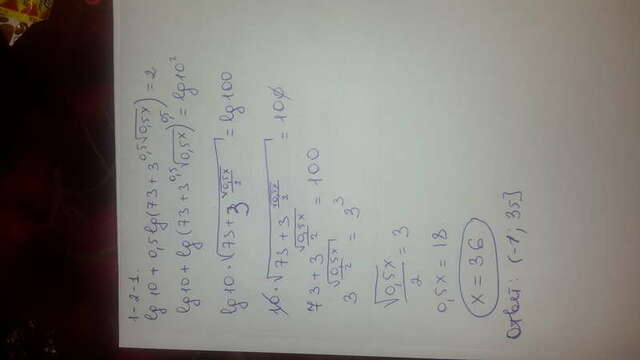 1-2-1.
lg10 + 0,5 lg(73 + 3^(0,5√(0,5x))) = 2
lg10 + lg(73 + 3^(0,5√(0,5x)))^0,5 = lg10²
lg10 · √(73 + 3^(√(0,5x)/2)) = lg100
10 · √(73 + 3^(√(0,5x)/2)) = 100
73 + 3^(√(0,5x)/2) = 100
3^(√(0,5x)/2) = 3³
√(0,5x)/2 = 3
0,5x = 18
x = 36
Ответ: (-1; 35]